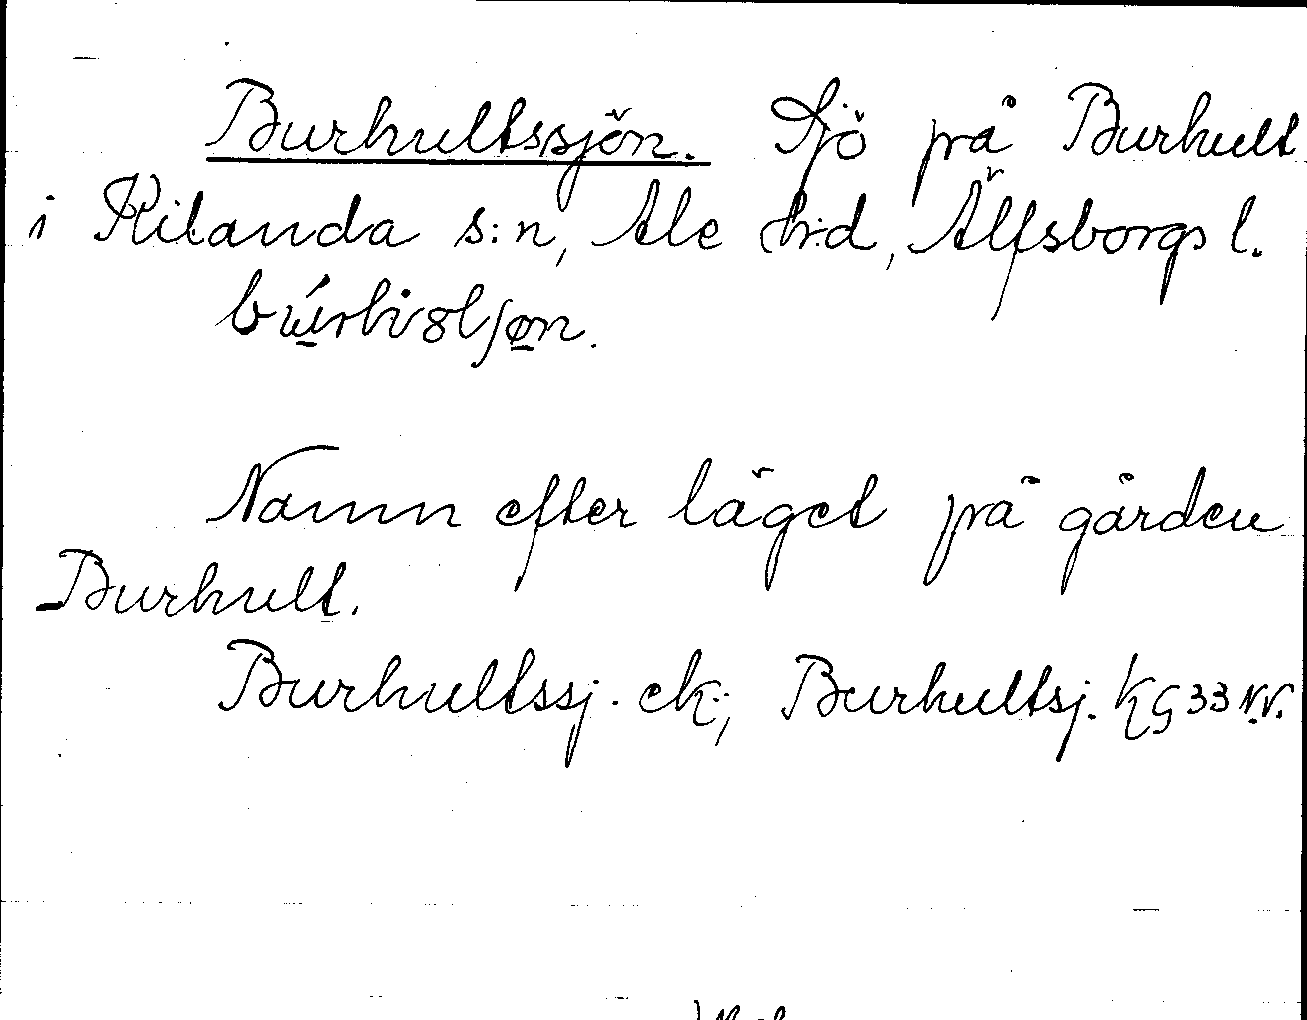 Burhultssjön. Sjö på Burhult
i Kilanda s:n, Ale h:d, Älfsborgs l.
Namn efter läget på gården
Burhult.
Burhultssj. ek; Burhultsj. KG 33 N.V.